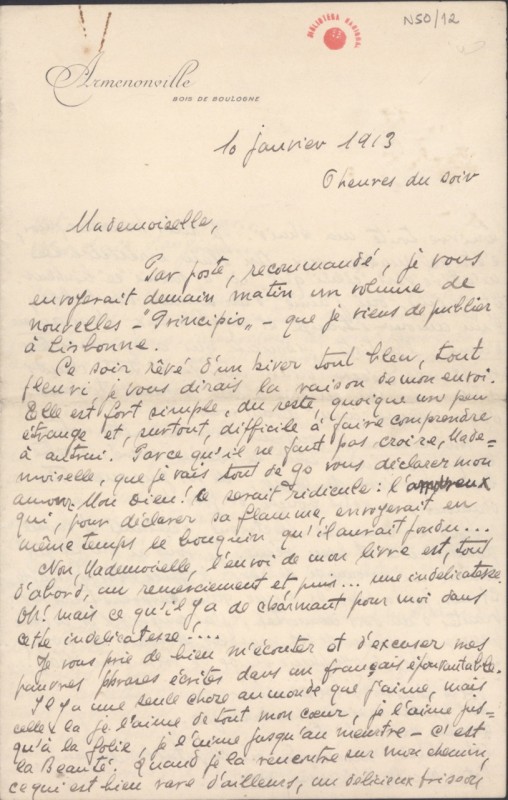 N50/12
BIBLIOTECA NACIONAL
Armenonville
BOIS DE BOULOGNE
10 janvier 1913
6 heures du soir
Mademoiselle,
Par poste, recommandé, je vous
envoyerait demain matin un volume de
nouvelles - "Principio" - que je viens de publier
à Lisbonne.
Ce soir rêvé d'un hiver tout bleu, tout
fleuri je vous dirais la raison de mon envoi.
Elle est fort simple, du reste, quoique un peu
étrange et, surtout, difficile à faire comprendre
à autrui. Parce qu'il ne faut pas croire, Made-
moiselle, que je vais tout de go vous déclarer mon
amour. Mon Dieu! Ce serait ridicule: l'amoureux
qui, pour déclarer sa flamme, envoyerait en
même temps le bouquin qu'il aurait pondu...
Non, Mademoiselle, l'envoi de mon livre est, tout
d'abord, un remerciement et puis... une indélicatesse.
Oh! mais ce qu'il y a de charmant pour moi dans
cette indélicatesse!...
Je vous prie de bien m'écouter et d'excuser mes
pauvres phrases écrites dans un français épouvantable.
Il y a une seule chose au monde que j'aime, mais
celle-la je l'aime de tout mon cœur, je l'aime jus-
qu'à la folie, je l'aime jusqu'au meurtre - c'est
la Beauté. Quand je la rencontre sur mon chemin,
ce qui est bien rare d'ailleurs, un délicieux frisson